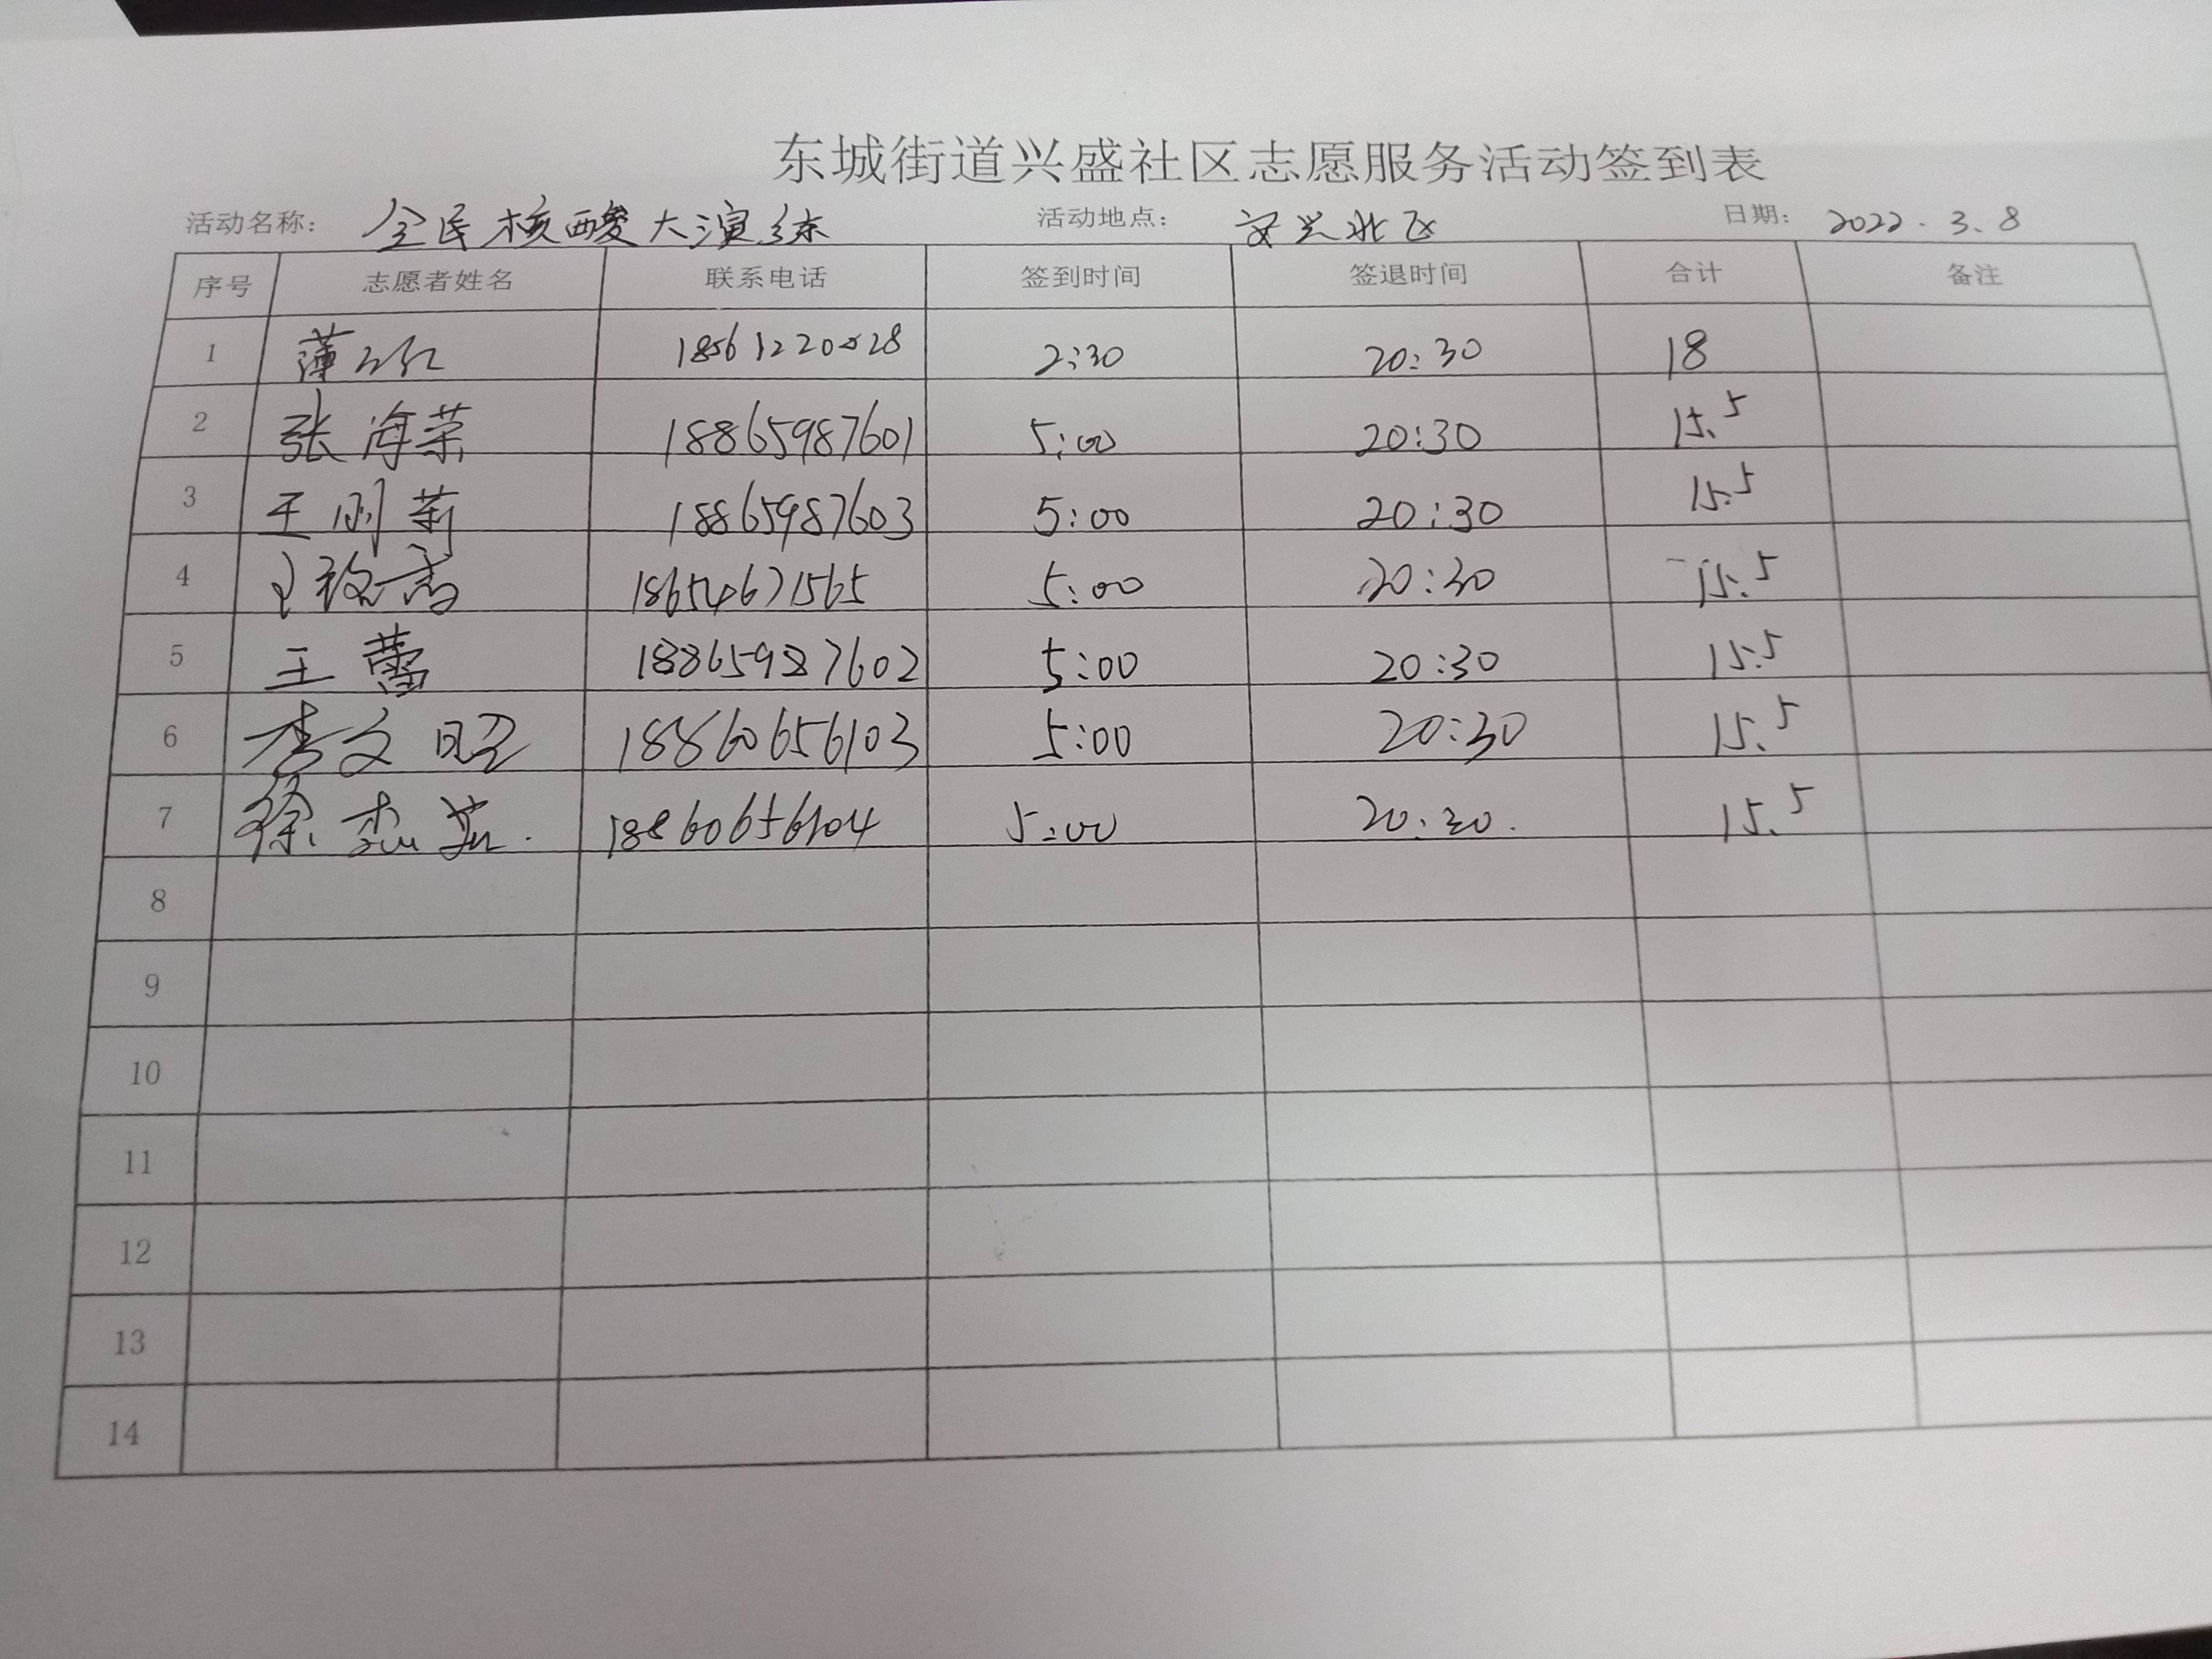 东城街道兴盛社区志愿服务活动签到表
活动名称： 全民核酸大演练 活动地点： 安兴北区 日期： 2022.3.8
序号 志愿者姓名 联系电话 签到时间 签退时间 合计 备注
1 薄 2:30 20:30 18
2 张海荣 18865987601 5:00 20:30 15.5
3 王刚 18865987603 5:00 20:30 15.5
4 18654671565 5:00 20:30 15.5
5 王蕾 18865987602 5:00 20:30 15.5
6 李文昭 18860656103 5:00 20:30 15.5
7 徐 18860656104 5:00 20:30. 15.5
8
9
10
11
12
13
14